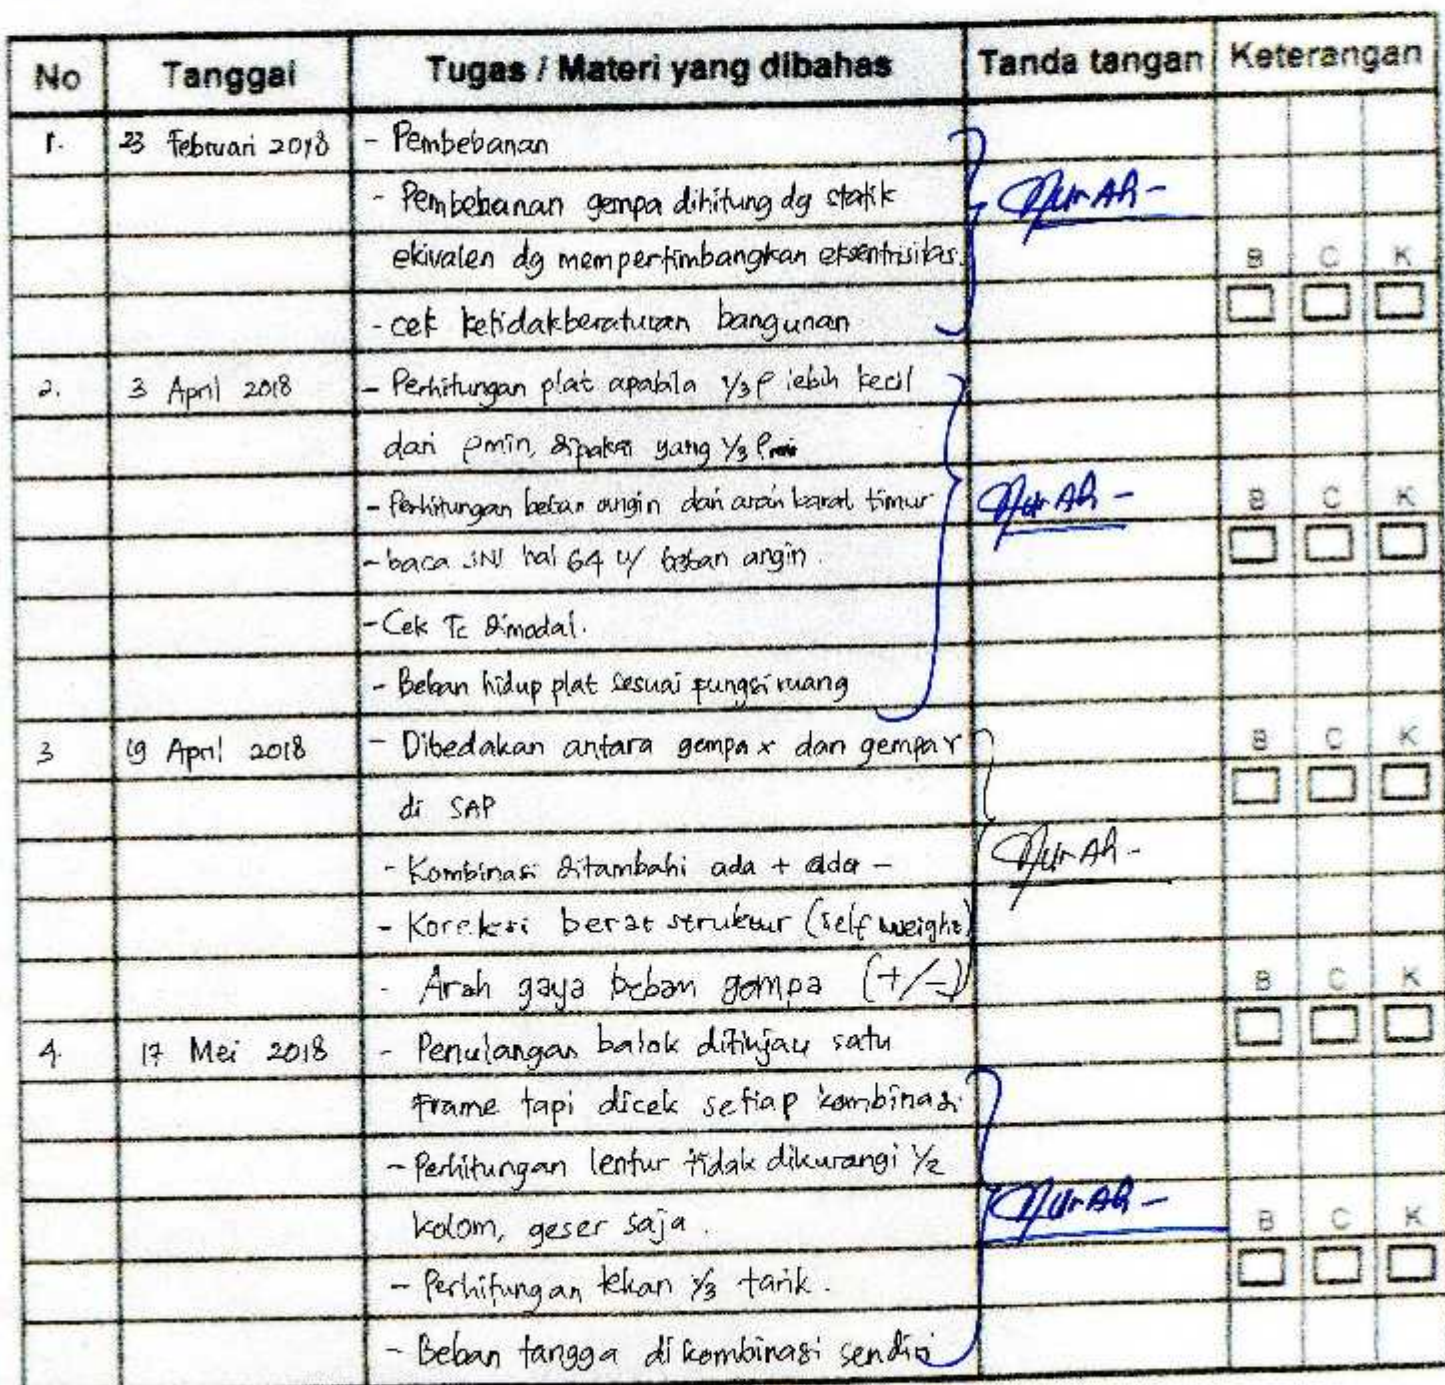 No Tanggal Tugas / Materi yang dibahas Tanda tangan Keterangan
1. 23 Februari 2018 - Pembebanan
- Pembebanan gempa dihitung dg statik
ekivalen dg mempertimbangkan eksentrisitas.
B C K
- cek ketidakberaturan bangunan
2. 3 April 2018 - Perhitungan plat apabila 1/3 ρ lebih kecil
dari ρmin, dipakai yang 1/3 ρ
- Perhitungan beban angin dari arah barat timur
B C K
- baca SNI hal 64 u/ beban angin.
- Cek Tc dimodal.
- Beban hidup plat sesuai fungsi ruang
3 19 April 2018 - Dibedakan antara gempa x dan gempa Y
B C K
di SAP
- Kombinasi ditambahi ada + ada -
- Koreksi berat struktur (self weight)
- Arah gaya beban gempa (+/-)
B C K
4. 17 Mei 2018 - Penulangan balok ditinjau satu
Frame tapi dicek setiap kombinasi
- Perhitungan lentur tidak dikurangi 1/2
kolom, geser saja.
B C K
- Perhitungan tekan 1/3 tarik.
- Beban tangga di kombinasi sendiri